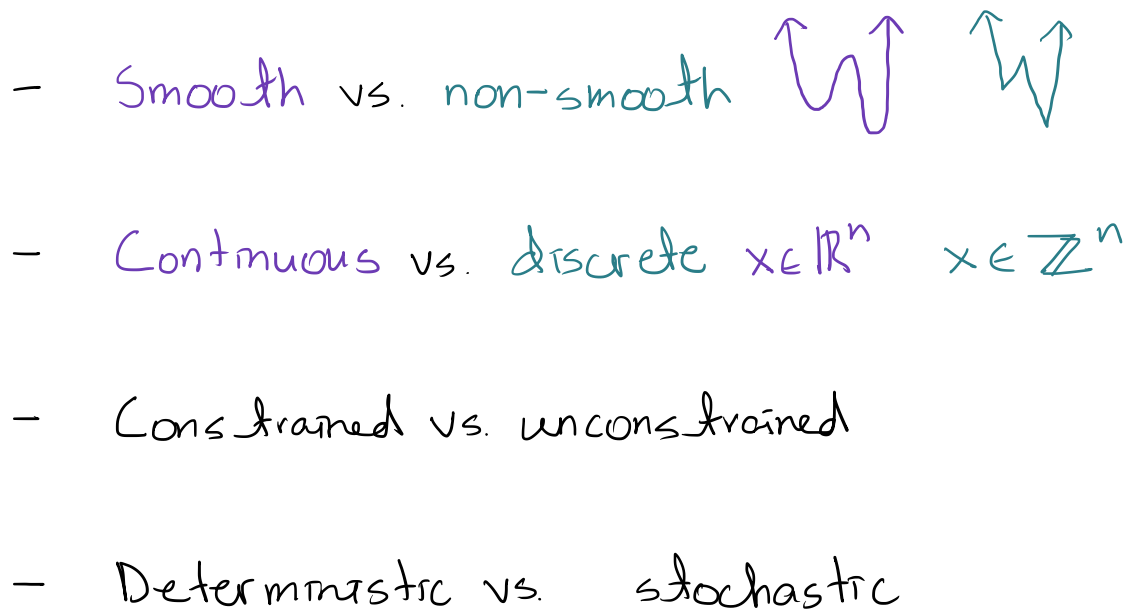 - Smooth vs. non-smooth
- Continuous vs. discrete x∈ℝⁿ x∈ℤⁿ
- Constrained vs. unconstrained
- Deterministic vs. stochastic